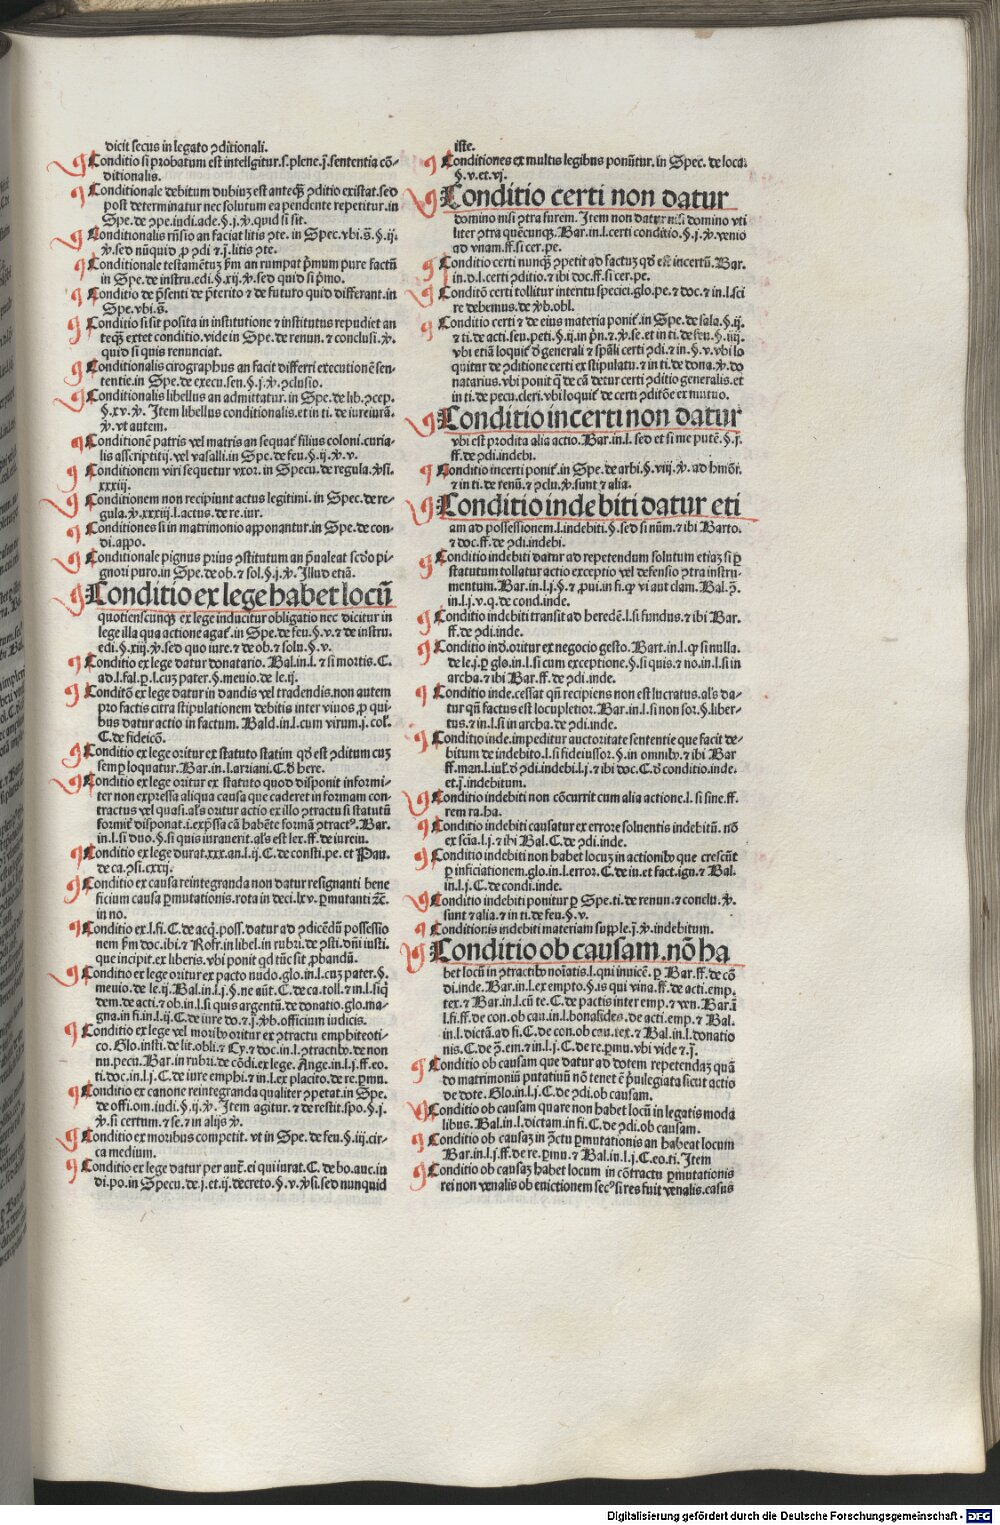 dicit secus in legato ꝯditionali.
Conditio si probatum est intelligitur.s.plene.j.sententia cō-
ditionalis.
Conditionale debitum dubiuꝫ est anteqꝫ ꝯditio existat.sed
post determinatur nec solutum ea pendente repetitur.in
Spe.de ꝯpe.iudi.ade.§.j.ꝟ.quid si sit.
Conditionalis rn̄sio an faciat litis ꝯte.in Spec.vbi.s̄.§.ij.
ꝟ.sed nūquid ꝓ ꝯdi ⁊.j.litis ꝯte.
Conditionale testamētuꝫ km̄ an rumpat p̄mum pure factū
in Spe.de instru.edi.§.xij.ꝟ.sed quid si p̄mo.
Conditio de p̄senti de p̄terito ⁊ de futuro quid differant.in
Spe.vbi.s̄.
Conditio si sit posita in institutione ⁊ institutus repudiet an
teqꝫ extet conditio.vide in Spe.de renun.⁊ conclusi.ꝟ.
quid si quis renunciat.
Conditionalis cirographus an facit differri executionē sen-
tentie.in Spe.de execu.sen.§.j.ꝟ.ꝯclusio.
Conditionalis libellus an admittatur.in Spe.de lib.ꝯcep.
§.xv.ꝟ. Item libellus conditionalis.et in ti.de iureiurā.
ꝟ.vt autem.
Conditionē patris vel matris an sequat᷑ filius coloni.curia-
lis asscriptitij.vel vasalli.in Spe.de feu.§.ij.ꝟ.v.
Conditionem viri sequetur vxor.in Specu.de regula.ꝟsi.
xxxiij.
Conditionem non recipiunt actus legitimi.in Spec.de re-
gula.ꝟ.xxxiij.l.actus.de re.iur.
Conditiones si in matrimonio apponantur.in Spe.de con-
di.appo.
Conditionale pignus prius ꝯstitutum an p̄ualeat scd̄o pi-
gnori puro.in Spe.de ob.⁊ sol.§.j.ꝟ. Illud etiā.
Conditio ex lege habet locū
quotienscunqꝫ ex lege inducitur obligatio nec dicitur in
lege illa qua actione agat᷑.in Spe.de feu.§.v.⁊ de instru.
edi.§.xij.ꝟ.sed quo iure.⁊ de ob.⁊ solu.§.v.
Conditio ex lege datur donatario. Bal.in.l.⁊ si mortis.C.
ad.l.fal.ꝑ.l.cuꝫ pater.§.meuio.de le.ij.
Conditō ex lege datur in dandis vel tradendis.non autem
pro factis citra stipulationem debitis inter viuos.ꝓ qui-
bus datur actio in factum. Bald.in.l.cum virum.j.col̄.
C.de fideicō.
Conditio ex lege oritur ex statuto statim qd̓ est ꝯditum cuꝫ
semꝑ loquatur. Bar.in.l.arriani.C.d̓ here.
Conditio ex lege oritur ex statuto quod disponit informi-
ter non expressa aliqua causa que caderet in formam con-
tractus vel quasi.al̓s oritur actio ex illo ꝯtractu si statutū
formit᷑ disponat.i.exp̄ssa cā habēte formā ꝯtractꝰ. Bar.
in.l.si duo.§.si quis iurauerit.al̓s est lex.ff.de iureiu.
Conditio ex lege durat.xxx.an.l.ij.C.de consti.pe.et Pau.
de ca.ꝯsi.cxxij.
Conditio ex causa reintegranda non datur resignanti bene
ficium causa ꝑmutationis.rota in deci.lxv.ꝑmutanti ⁊c̄.
in no.
Conditio ex.l.fi.C.de acq̄.poss̄.datur ad ꝯdicēdū possessio
nem km̄ doc.ibi.⁊ Rofr.in libel.in rubri.de ꝯsti.dn̄i iusti.
que incipit.ex liberis.vbi ponit qd tūc sit ꝓbandū.
Conditio ex lege oritur ex pacto nudo.glo.in.l.cuꝫ pater.§.
meuio.de le.ij. Bal.in.l.j.§.ne aūt.C.de ca.toll.⁊ in.l.siqͥ
dem.de acti.⁊ ob.in.l.si quis argentū.de donatio.glo.ma-
gna.in fi.in.l.ij.C.de iure do.⁊.j.ꝟb.officium iudicis.
Conditio ex lege vel moribꝰ oritur ex ꝯtractu emphiteoti-
co. Glo.insti.de lit.obli.⁊ Cy.⁊ doc.in.l.ꝯtractibꝰ.de non
nu.pecu. Bar.in rubri.de cōdi.ex lege. Ange.in.l.j.ff.eo.
ti.doc.in.l.j.C.de iure emphi.⁊ in.l.ex placito.de re.ꝑmu.
Conditio ex canone reintegranda qualiter ꝯpetat.in Spe.
de offi.om.iudi.§.ij.ꝟ. Item agitur.⁊ de restit.spo.§.j.
ꝟ.si certum.⁊ se.⁊ in alijs ꝟ.
Conditio ex moribus competit.vt in Spe.de feu.§.iij.cir-
ca medium.
Conditio ex lege datur per aut̄.ei qui iurat.C.de bo.auc.iu
di.po.in Specu.de.j.et.ij.decreto.§.v.ꝟsi.sed nunquid
iste.
Conditiones ex multis legibus ponūtur.in Spec.de loca.
§.v.et.vj.
Conditio certi non datur
domino nisi ꝯtra furem. Item non datur nisi domino vti
liter ꝯtra quēcunqꝫ. Bar.in.l.certi conditio.§.j.ꝟ.venio
ad vnam.ff.si cer.pe.
Conditio certi nunqꝫ ꝯpetit ad factuꝫ qd̓ est incertū. Bar.
in.d.l.certi ꝯditio.⁊ ibi doc.ff.si cer.pe.
Conditō certi tollitur interitu speciei.glo.pe.⁊ doc.⁊ in.l.sci
re debemus.de ꝟb.obl.
Conditio certi ⁊ de eius materia ponit᷑.in Spe.de sala.§.ij.
⁊ ti.de acti.seu.peti.§.ij.in p̄n.⁊ ꝟ.se.et in ti.de feu.§.iiij.
vbi etiā loquit᷑ d̓ generali ⁊ sp̄ali certi ꝯdi.⁊ in.§.v.vbi lo
quitur de ꝯditione certi ex stipulatu.⁊ in ti.de dona.ꝟ.do
natarius.vbi ponit q̄ de cā detur certi ꝯditio generalis.et
in ti.de pecu.cleri.vbi loquit᷑ de certi ꝯditōe ex mutuo.
Conditio incerti non datur
vbi est prodita alia actio. Bar.in.l.sed et si me putē.§.j.
ff.de ꝯdi.indebi.
Conditio incerti ponit᷑.in Spe.de arbi.§.viij.ꝟ.ad hmōi.
⁊ in ti.de renū.⁊ ꝯclu.ꝟ.sunt ⁊ alia.
Conditio indebiti datur eti
am ad possessionem.l.indebiti.§.sed si nūm.⁊ ibi Barto.
⁊ doc.ff.de ꝯdi.indebi.
Conditio indebiti datur ad repetendum solutum etiaꝫ si ꝑ
statutum tollatur actio exceptio vel defensio ꝯtra instru-
mentum. Bar.in.l.j.§.⁊ ꝓui.in fi.qꝫ vi aut clam. Bal.ꝯ̄.
in.l.j.v.q.de cond.inde.
Conditio indebiti transit ad heredē.l.si fundus.⁊ ibi Bar.
ff.de ꝯdi.inde.
Conditio ind̓.oritur ex negocio gesto. Bart.in.l.qꝫ si nulla.
de le.j.ꝑ glo.in.l.si cum exceptione.§.si quis.⁊ no.in.l.si in
archa.⁊ ibi Bar.ff.de ꝯdi.inde.
Conditio inde.cessat qn̄ recipiens non est lucratus.al̓s da-
tur qn̄ factus est locupletior. Bar.in.l.si non sor.§.liber-
tus.⁊ in.l.si in archa.de ꝯdi.inde.
Conditio inde.impeditur auctoritate sententie que facit de-
bitum de indebito.l.si fideiussor.§.in omnibꝰ.⁊ ibi Bar
ff.man.l.iul̓.d̓ ꝯdi.indebi.l.j.⁊ ibi doc.C.d̓ conditio.inde.
et.j.indebitum.
Conditio indebiti non cōcurrit cum alia actione.l.si sine.ff.
rem ra.ha.
Conditio indebiti causatur ex errore soluentis indebitū.nō
ex scīa.l.j.⁊ ibi Bal.C.de ꝯdi.inde.
Conditio indebiti non habet locuꝫ in actionibꝰ que crescūt
ꝑ inficiationem.glo.in.l.error.C.de iu.et fact.ign.⁊ Bal.
in.l.j.C.de condi.inde.
Conditio indebiti ponitur ꝑ Spe.ti.de renun.⁊ conclu.ꝟ.
sunt ⁊ alia.⁊ in ti.de feu.§.v.
Conditionis indebiti materiam supple.j.ꝟ.indebitum.
Conditio ob causam.nō ha
bet locū in ꝯtractibꝰ noīatis.l.qui inuicē.ꝑ Bar.ff.de cō
di.inde. Bar.in.l.ex empto.§.is qui vina.ff.de acti.emp.
tex.⁊ Bar.in.l.cū te.C.de pactis inter emp.⁊ ven. Bar.ī
l.fi.ff.de con.ob cau.in.l.bonafides.de acti.emp.⁊ Bal.
in.l.dictā.ad fi.C.de con.ob cau.tex.⁊ Bal.in.l.donatio
nis.C.de ꝯ̄.em.⁊ in.l.j.C.de re.ꝑmu.vbi vide ⁊.j.
Conditio ob causam que datur ad dotem repetendaꝫ quā
do matrimoniū putatiuū nō tenet ē p̄uilegiata sicut actio
de dote. Glo.in.l.j.C.de ꝯdi.ob causam.
Conditio ob causam quare non habet locū in legatis moda
libus. Bal.in.l.dictam.in fi.C.de ꝯdi.ob causam.
Conditio ob causaꝫ in ꝯ̄ctu ꝑmutationis an habeat locum
Bar.in.l.j.ff.de re.ꝑmu.⁊ Bal.in.l.j.C.eo.ti. Item
Conditio ob causaꝫ habet locum in cōtractu ꝑmutationis
rei non venalis ob euictionem secꝰ si res fuit venalis.casus
Digitalisierung gefördert durch die Deutsche Forschungsgemeinschaft - DFG